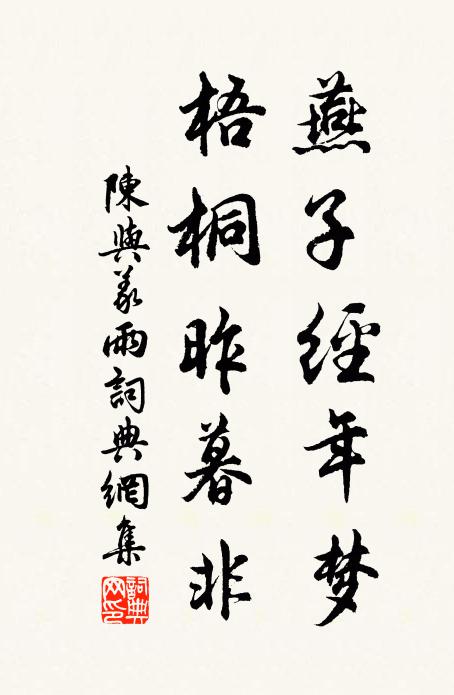 燕子經年梦
梧桐昨暮非
陳與義雨詞典網集
詞典网印